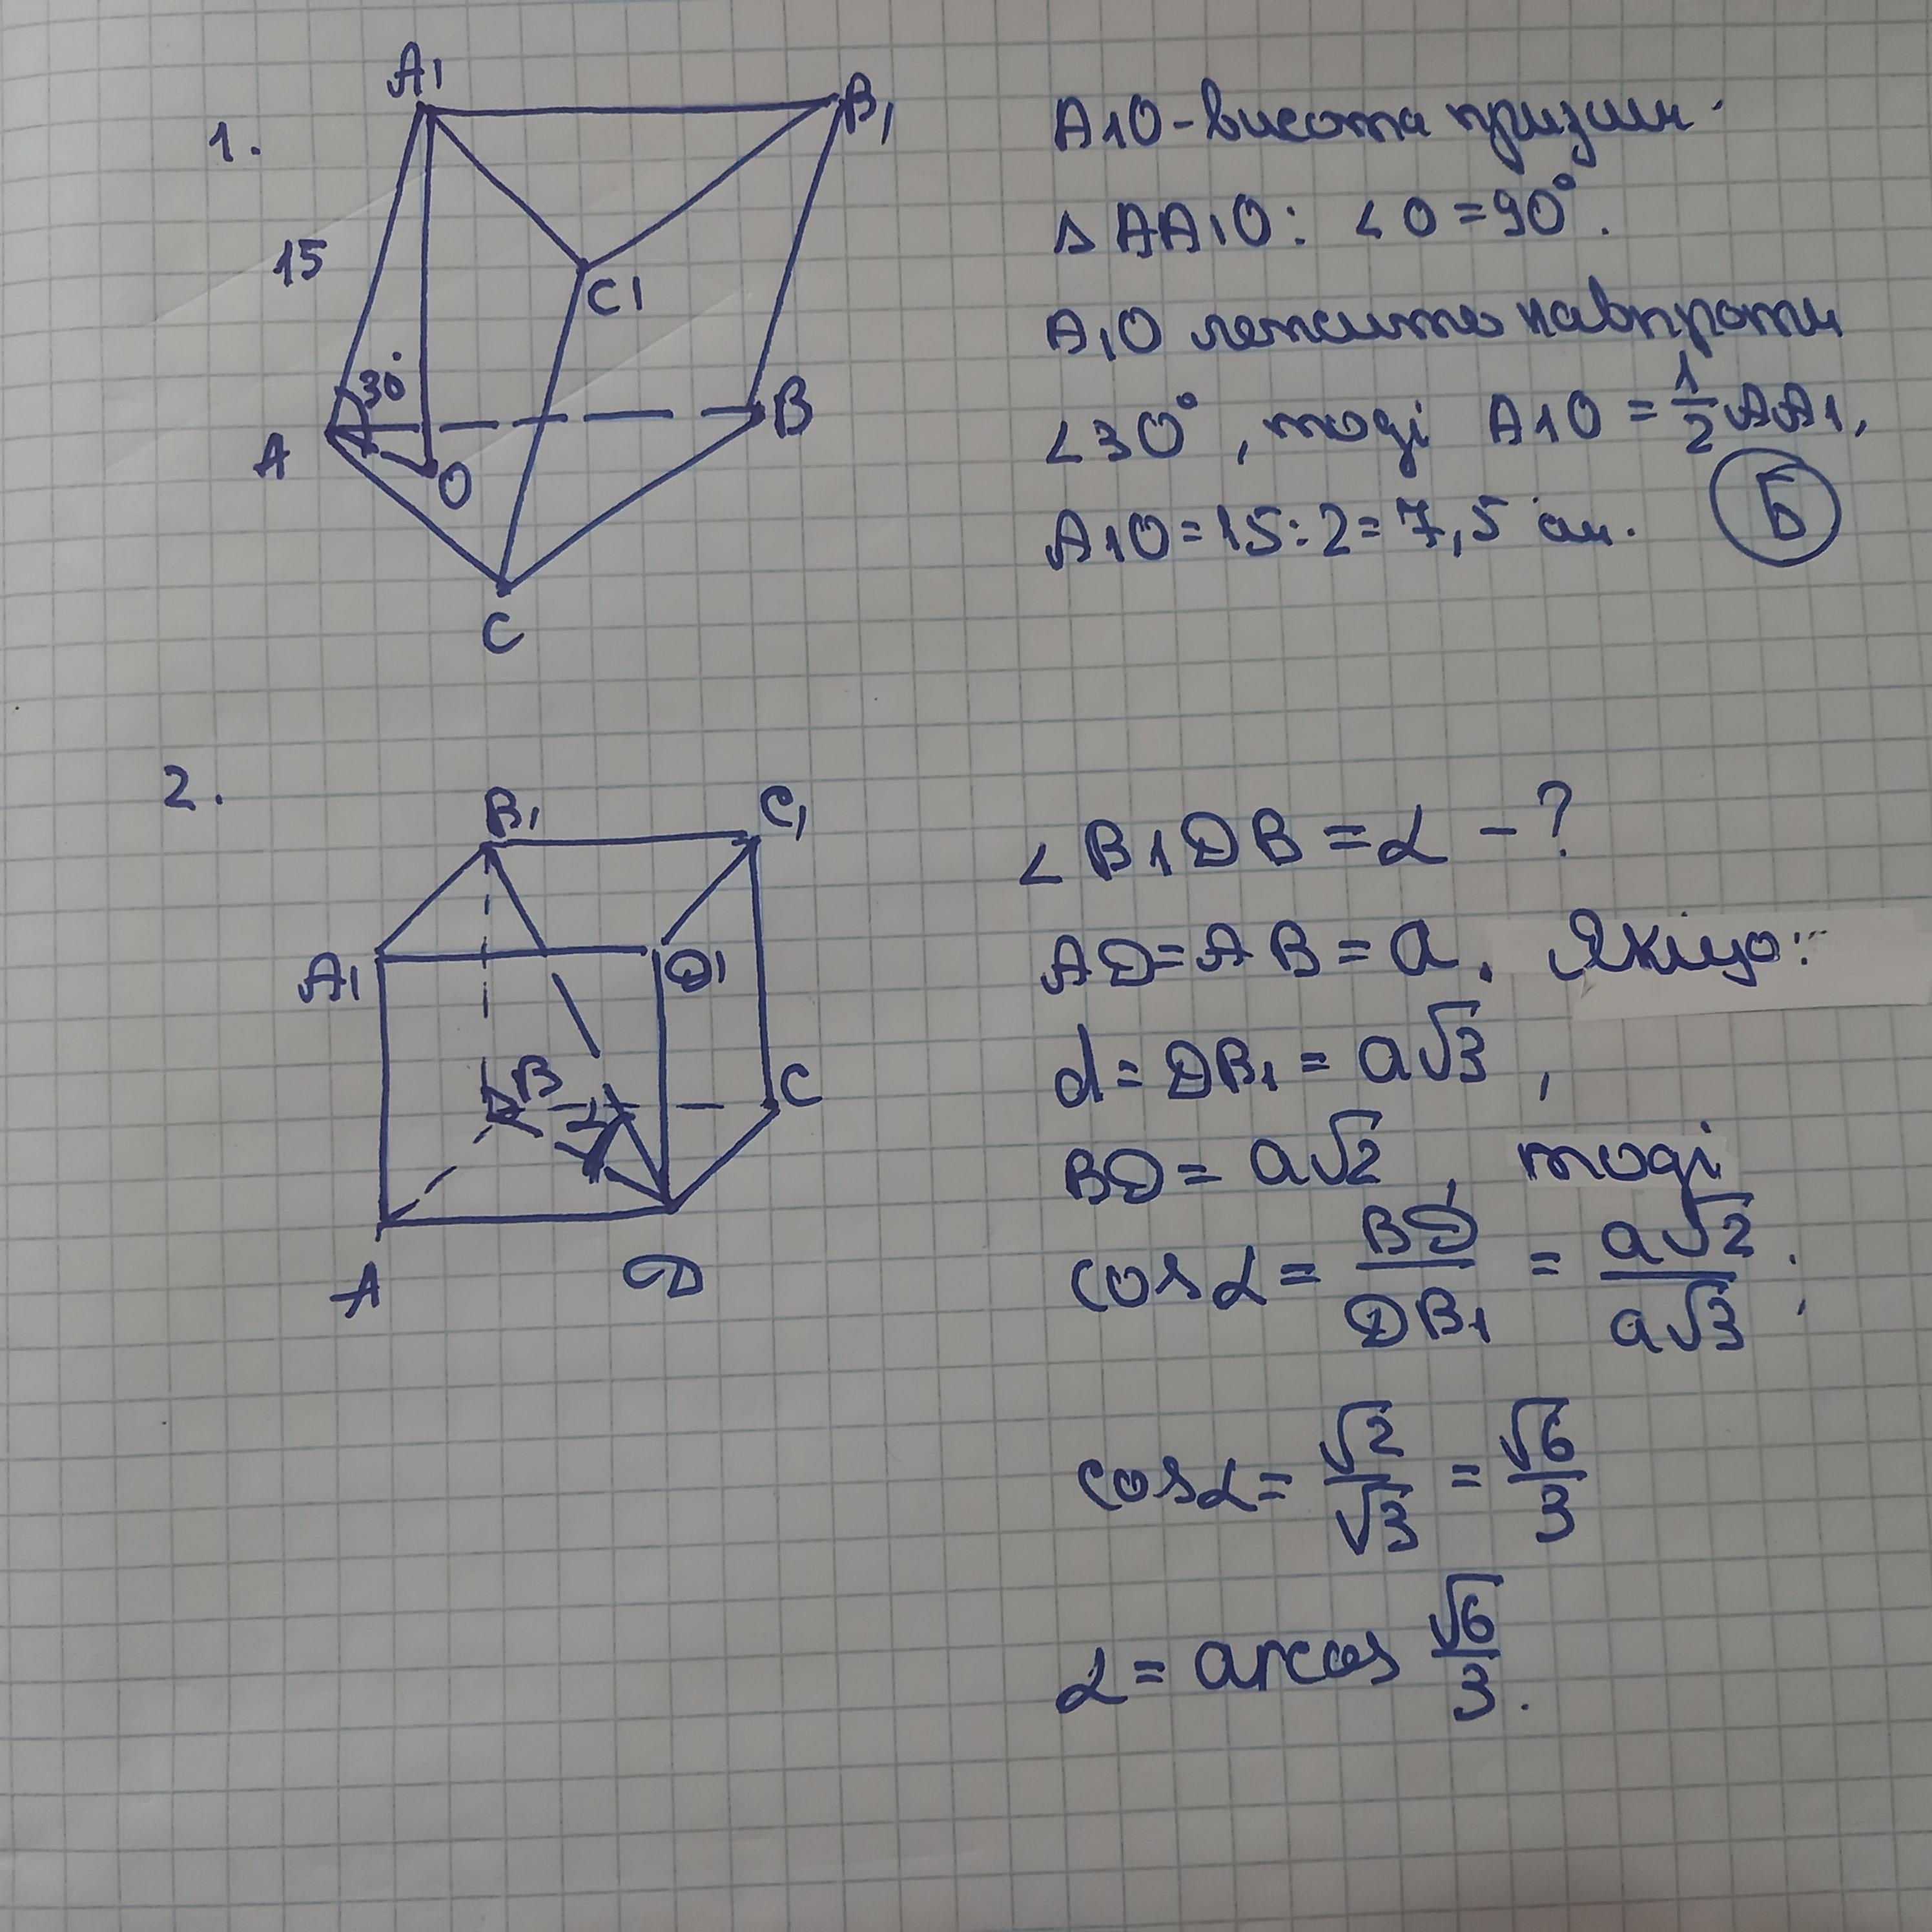 1.
A₁
B₁
15
C₁
30°
A
O
B
C
A₁O - висота призми.
△ AA₁O: ∠O = 90°.
A₁O лежить навпроти
∠30°, тоді A₁O = 1/2 AA₁,
A₁O = 15 : 2 = 7,5 см. Б
2.
B₁
C₁
A₁
D₁
B
C
α
A
D
∠B₁DB = α - ?
AD = AB = a. Якщо:
d = DB₁ = a√3 ,
BD = a√2 , тоді
cos α = BD/DB₁ = a√2/a√3 ;
cos α = √2/√3 = √6/3
α = arccos √6/3 .